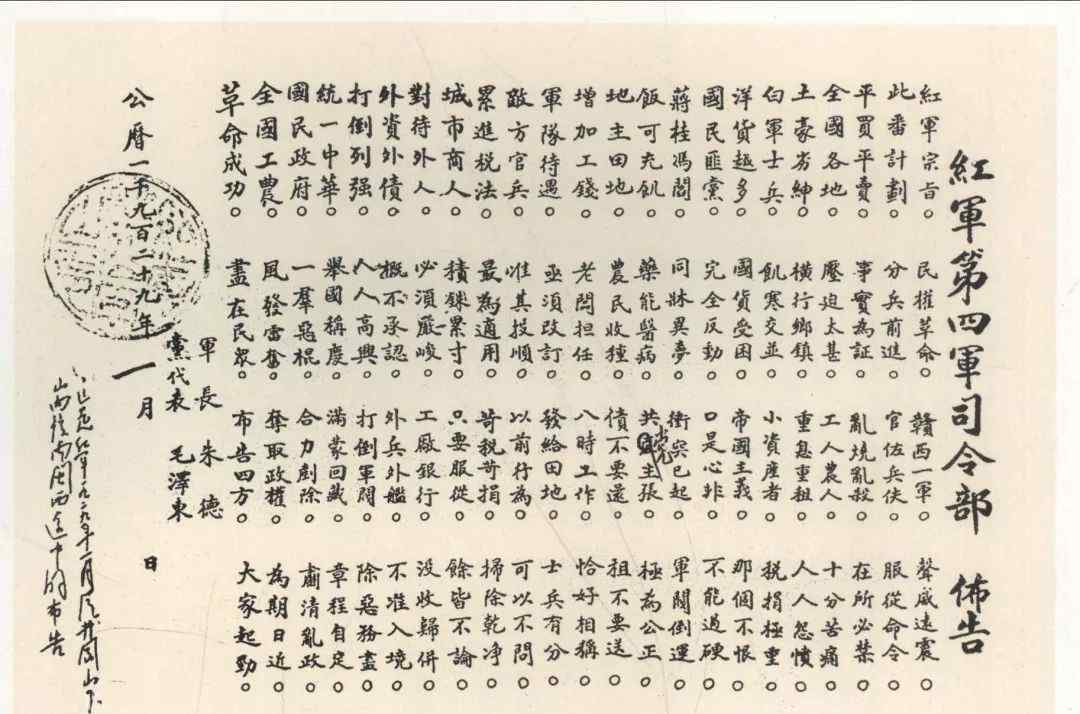 紅軍第四軍司令部 佈告
紅軍宗旨。民權革命。贛西一軍。聲威遠震。
此番計劃。分兵前進。官佐兵伕。服從命令。
平買平賣。事實為証。亂燒亂殺。在所必禁。
全國各地。壓迫太甚。工人農人。十分苦痛。
土豪劣紳。橫行鄉鎮。重息重租。人人怨憤。
白軍士兵。飢寒交並。小資產者。稅捐極重。
洋貨越多。國貨受困。帝國主義。那個不恨。
國民匪黨。完全反動。口是心非。不能過硬。
蔣桂馮閻。同牀異夢。衝突已起。軍閥倒運。
飯可充飢。藥能醫病。共黨主張。極為公正。
地主田地。農民收種。債不要還。租不要送。
增加工錢。老闆担任。八時工作。恰好相稱。
軍隊待遇。亟須改訂。發給田地。士兵有分。
敵方官兵。准其投順。以前行為。可以不問。
累進稅法。最為適用。苛稅苛捐。掃除乾净。
城市商人。積銖累寸。只要服從。餘皆不論。
對待外人。必須嚴峻。工廠銀行。沒收歸併。
外資外債。概不承認。外兵外艦。不准入境。
打倒列强。人人高興。打倒軍閥。除惡務盡。
統一中華。舉國稱慶。滿蒙回藏。章程自定。
國民政府。一羣惡棍。合力剷除。肅清亂政。
全國工農。風發雷奮。奪取政權。為期日近。
革命成功。盡在民眾。布告四方。大家起勁。
軍長 朱德
黨代表 毛澤東
公曆一千九百二十九年一月 日
這是紅軍一九二九年一月從井岡山下
山向贛南閩西途中的布告